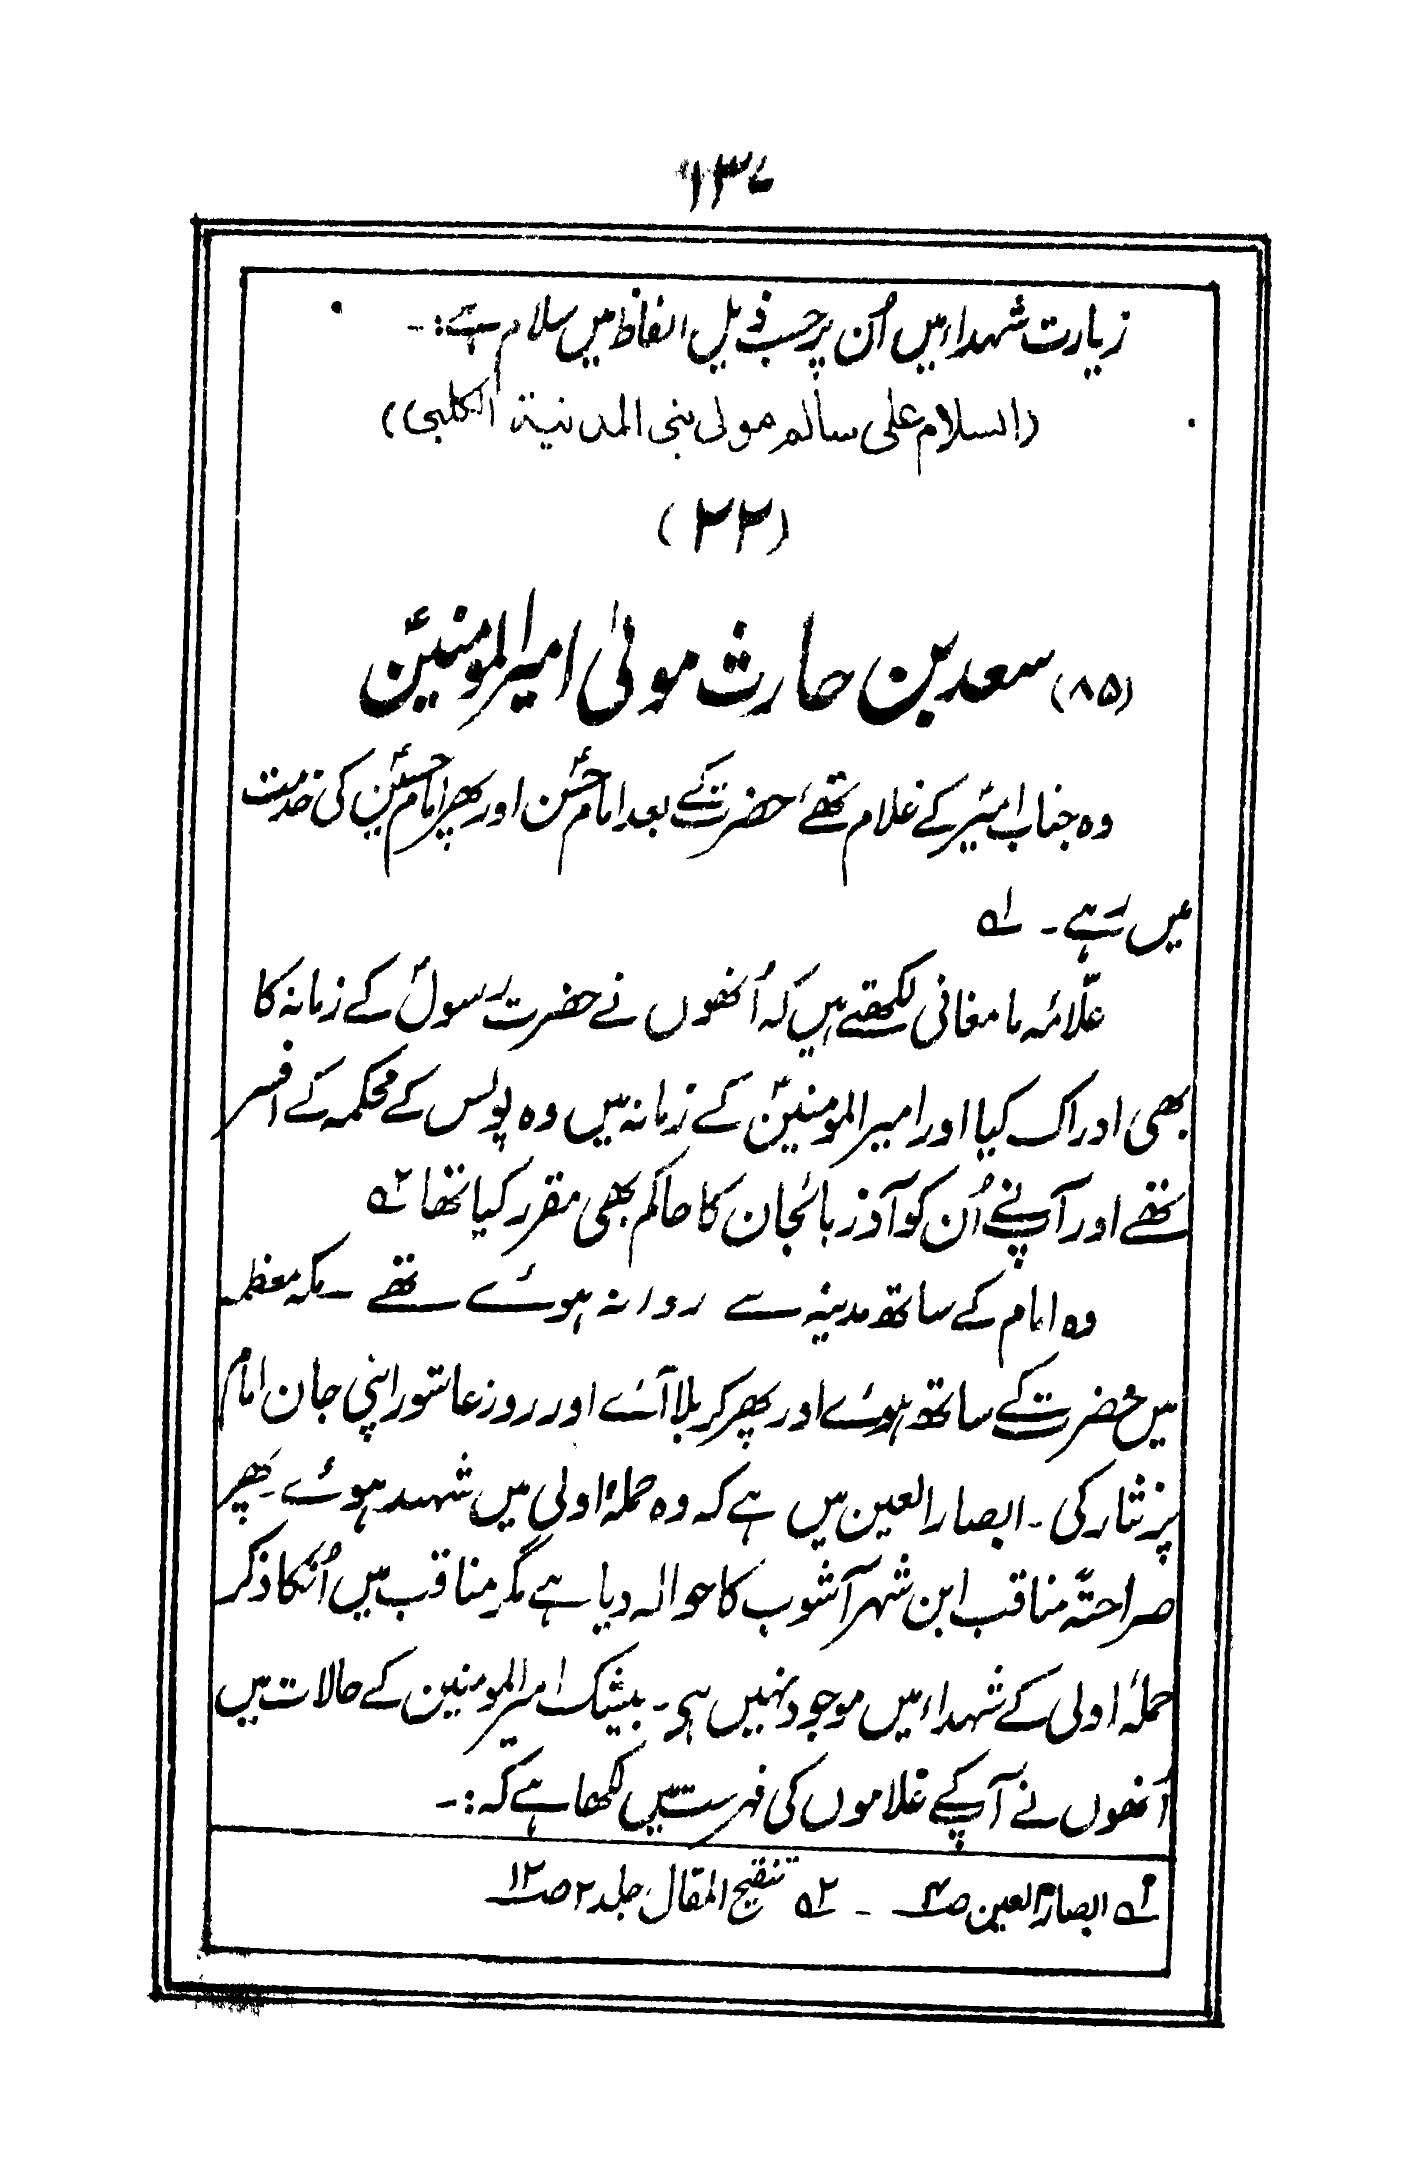 ۱۳۷
زیارت شہداء میں اُن پر حسب ذیل الفاظ میں سلام ہے:۔
(السلام علی سالم مولی بنی المدنیة الکلبی)
(۲۲)
(۸۵) سعد بن حارث مولیٰ امیر المومنینؑ
وہ جناب امیرؑ کے غلام تھے حضرتؑ کے بعد امام حسنؑ اور پھر امام حسینؑ کی خدمت
میں رہے۔ ۱ه
علّامہ مامغانی لکھتے ہیں کہ اُنھوں نے حضرت رسولؐ کے زمانہ کا
بھی ادراک کیا اور امیر المومنینؑ کے زمانہ میں وہ پولس کے محکمہ کے افسر
تھے اور آپنے اُن کو آذربائجان کا حاکم بھی مقرر کیا تھا ۲ه
وہ امام کے ساتھ مدینہ سے روانہ ہوئے تھے۔ مکہ معظمہ
میں حضرت کے ساتھ ہوئے اور پھر کربلا آئے اور روز عاشور اپنی جان امام
پر نثار کی۔ ابصار العین میں ہے کہ وہ حملۂ اولی میں شہید ہوئے۔ پھر
صراحتہً مناقب ابن شہر آشوب کا حوالہ دیا ہے مگر مناقب میں اُنکا ذکر
حملۂ اولی کے شہداء میں موجود نہیں ہی۔ بیشک امیر المومنین کے حالات میں
اُنھوں نے آپکے غلاموں کی فہرست میں لکھا ہے کہ:۔
۱ه ابصار العین ص۴ ۔ ۲ه تنقیح المقال جلد ۲ ص۱۲